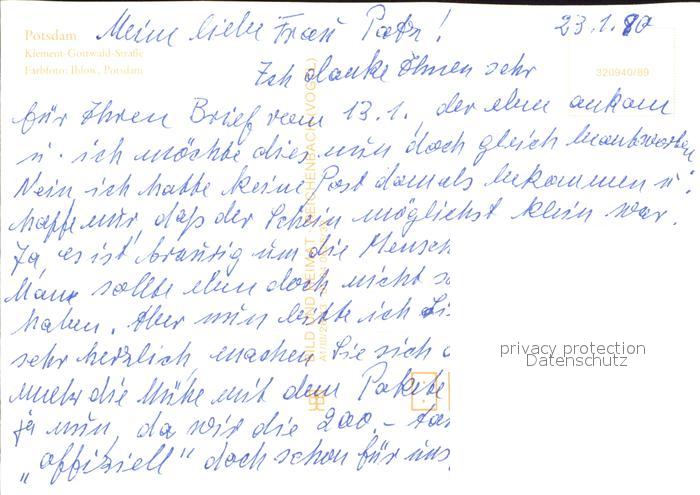 Potsdam
Klement-Gottwald-Straße
Farbfoto: Ihlow, Potsdam
Meine liebe Frau Patz! 23.1.90
Ich danke Ihnen sehr
320940/89
für Ihren Brief vom 13.1., der eben ankam
u. ich möchte dies nun doch gleich beantworten
Nein ich hatte keine Post damals bekommen u.
hoffe nur, daß der Schein möglichst klein war.
Ja, es ist traurig um die Mensch
Mann sollte eben doch nicht so
haben. Aber nun bitte ich Si
sehr herzlich, machen Sie sich
mehr die Mühe mit dem Pakete
ja nun, da wir die 200.-
„offiziell" doch schon für uns
BILD UND HEIMAT REICHENBACH (VOGTL)
privacy protection
Datenschutz